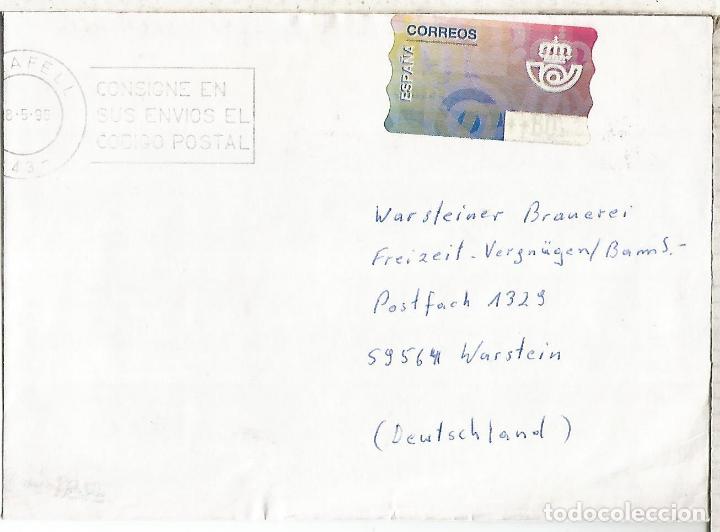 AFELL
8-5-96
CONSIGNE EN
SUS ENVIOS EL
CODIGO POSTAL
CORREOS
ESPAÑA
Warsteiner Brauerei
Freizeit-Vergnügen/BamS.-
Postfach 1329
59564 Warstein
(Deutschland)
todocoleccion